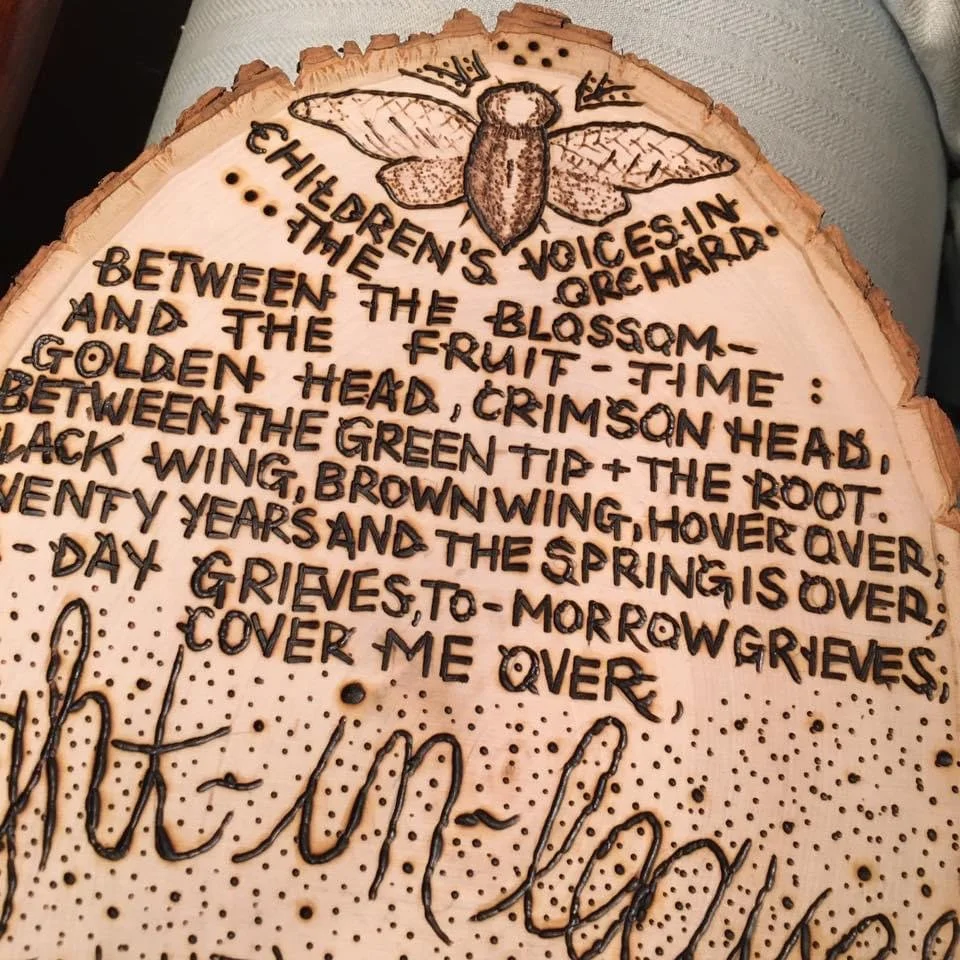 CHILDREN'S VOICES IN
... THE ORCHARD.
BETWEEN THE BLOSSOM-
AND THE FRUIT-TIME:
GOLDEN HEAD, CRIMSON HEAD,
BETWEEN THE GREEN TIP + THE ROOT.
LACK WING, BROWN WING, HOVER OVER;
WENTY YEARS AND THE SPRING IS OVER;
-DAY GRIEVES, TO-MORROW GRIEVES,
COVER ME OVER,
ght-in-leave